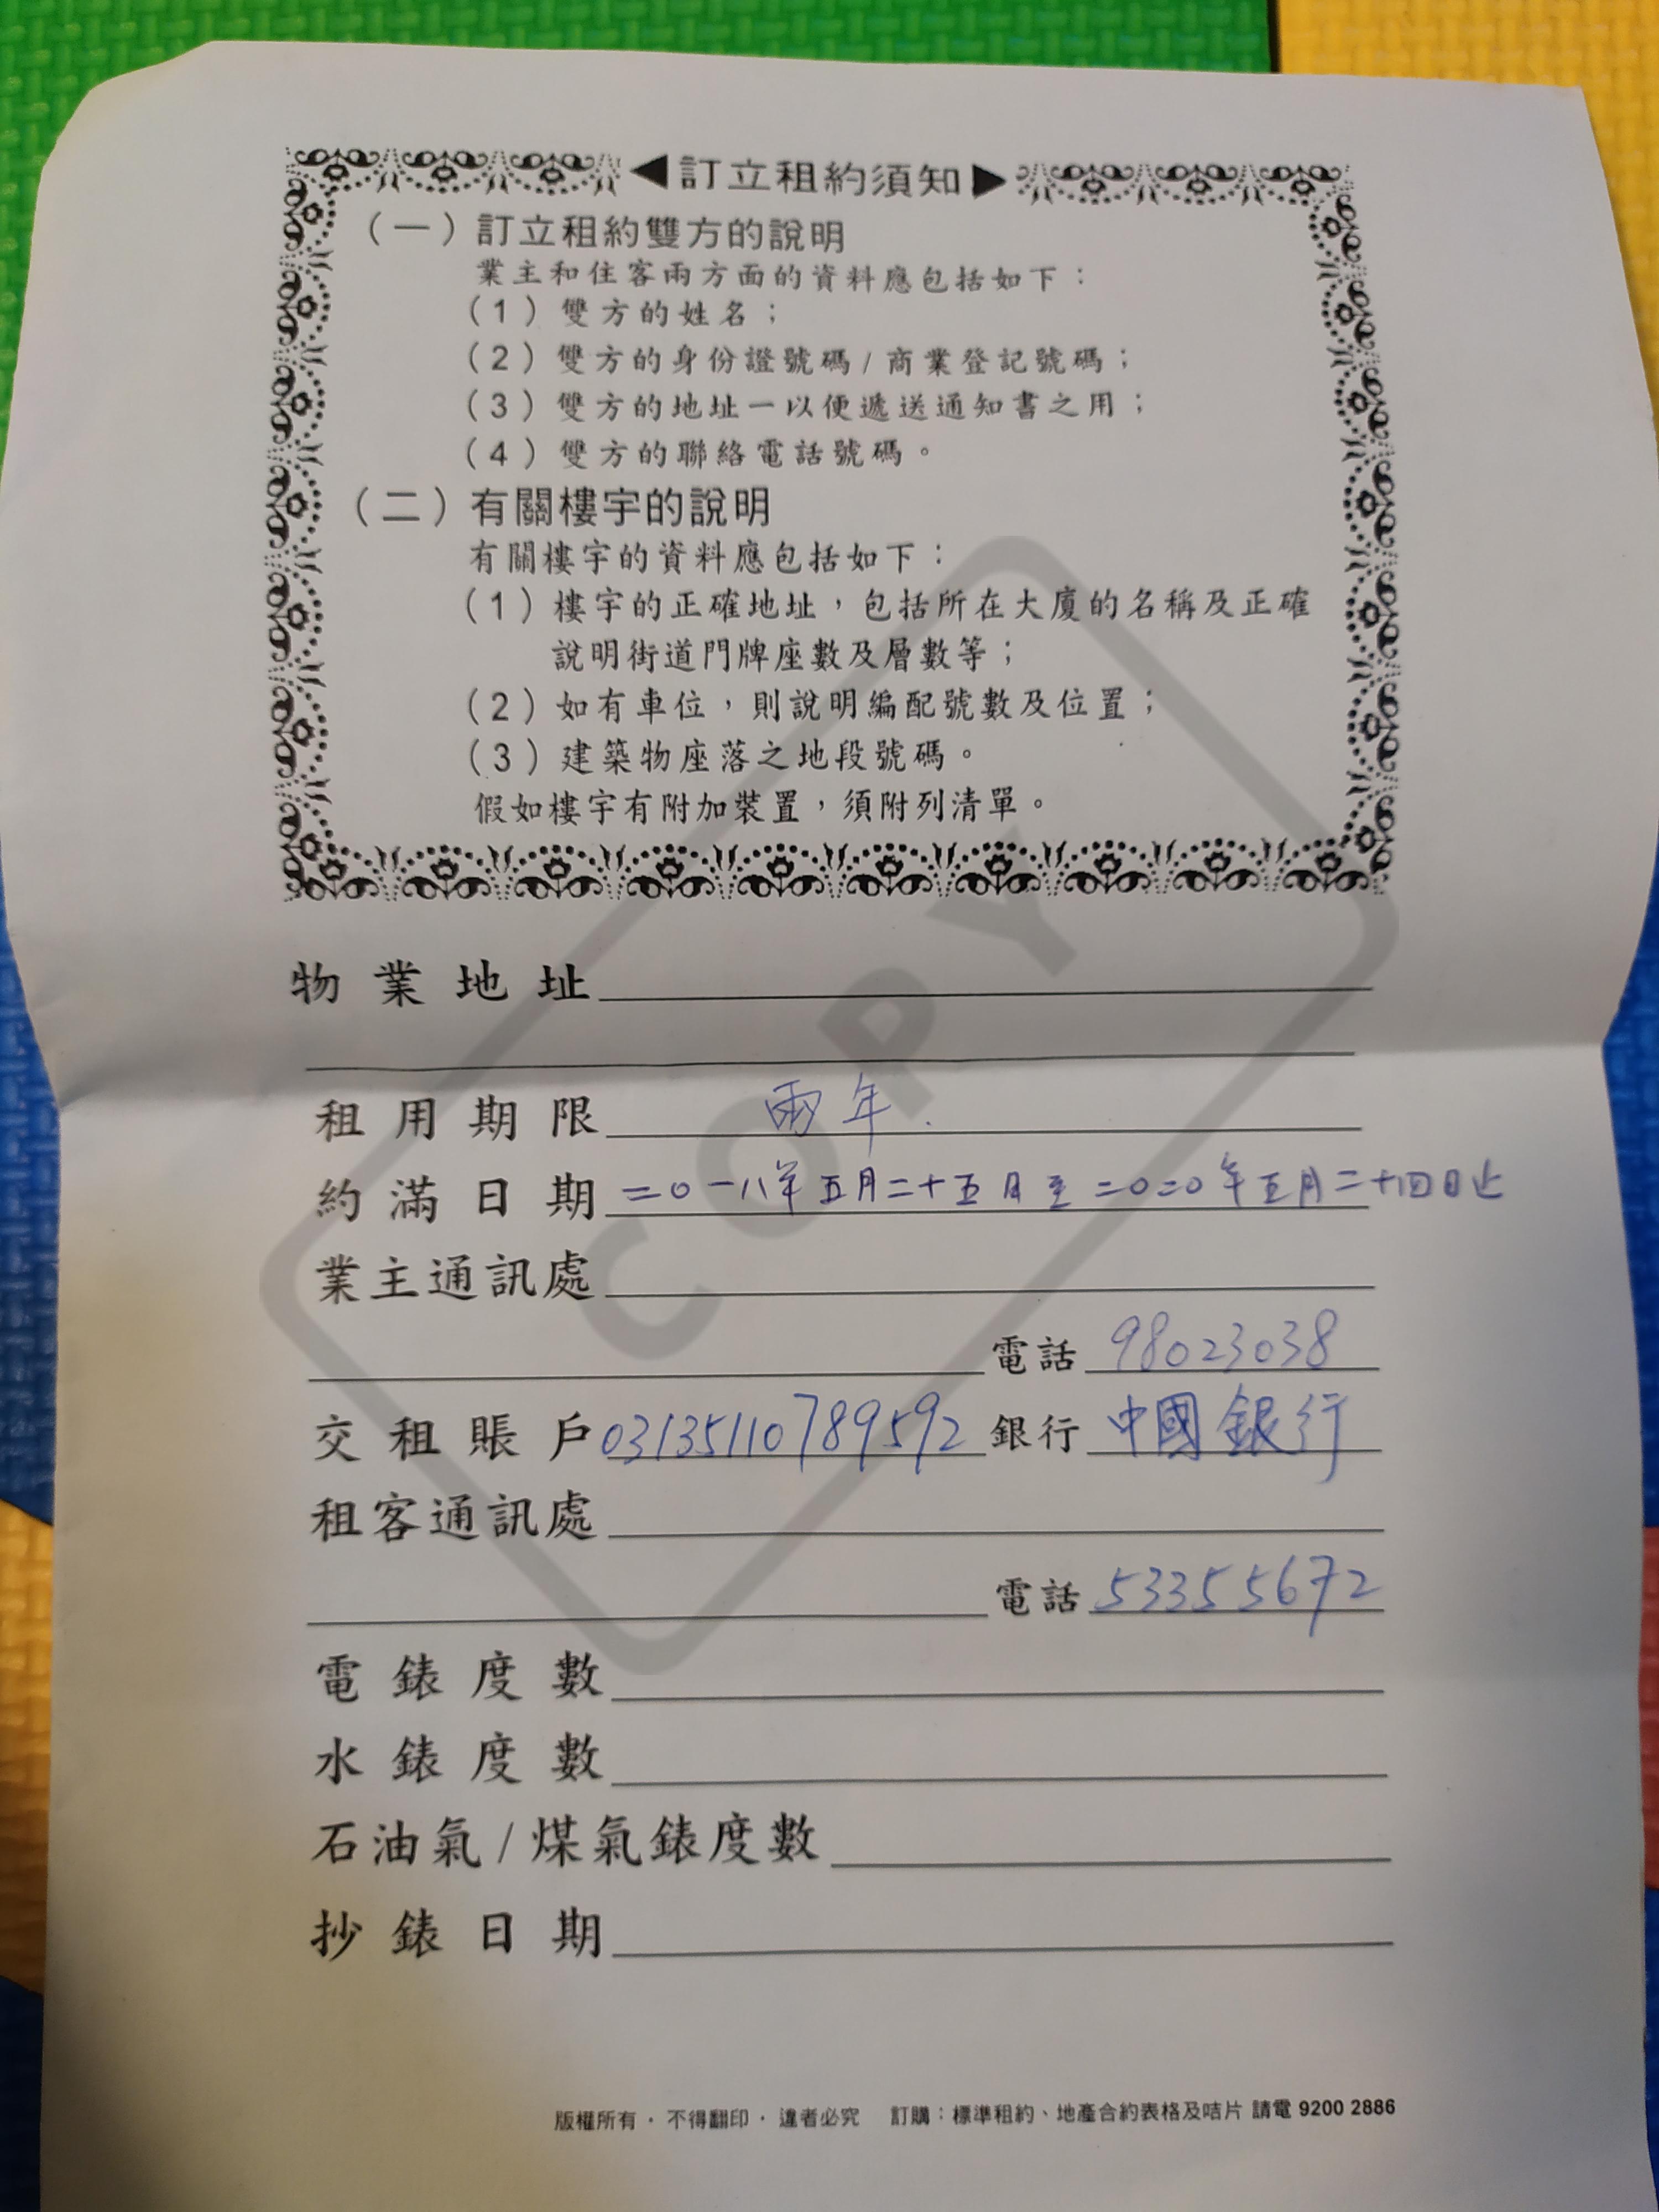 ◀訂立租約須知▶
（一）訂立租約雙方的說明
業主和住客兩方面的資料應包括如下：
（1）雙方的姓名；
（2）雙方的身份證號碼/商業登記號碼；
（3）雙方的地址一以便遞送通知書之用；
（4）雙方的聯絡電話號碼。
（二）有關樓宇的說明
有關樓宇的資料應包括如下：
（1）樓宇的正確地址，包括所在大廈的名稱及正確
說明街道門牌座數及層數等；
（2）如有車位，則說明編配號數及位置；
（3）建築物座落之地段號碼。
假如樓宇有附加裝置，須附列清單。
COPY
物業地址
租用期限 兩年.
約滿日期 二0一八年五月二十五日至二0二0年五月二十四日止
業主通訊處
電話 98023038
交租賬戶 03135110789592 銀行 中國銀行
租客通訊處
電話 53355672
電錶度數
水錶度數
石油氣/煤氣錶度數
抄錶日期
版權所有．不得翻印．違者必究 訂購：標準租約、地產合約表格及咭片 請電 9200 2886